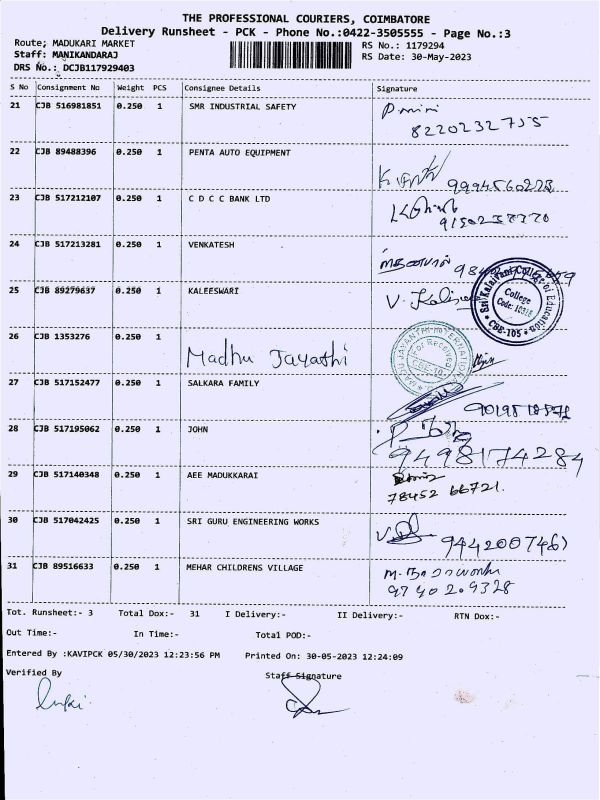 THE PROFESSIONAL COURIERS, COIMBATORE
Delivery Runsheet - PCK - Phone No.:0422-3505555 - Page No.:3
Route; MADUKARI MARKET RS No.: 1179294
Staff: MANIKANDARAJ RS Date: 30-May-2023
DRS No.: DCJB117929403
S No Consignment No Weight PCS Consignee Details Signature
21 CJB 516981851 0.250 1 SMR INDUSTRIAL SAFETY
8220232755
22 CJB 89488396 0.250 1 PENTA AUTO EQUIPMENT
23 CJB 517212107 0.250 1 C D C C BANK LTD
24 CJB 517213281 0.250 1 VENKATESH
25 CJB 89279637 0.250 1 KALEESWARI
Sri Kalaivani College of Education
College Code: 10315
CBE-105
26 CJB 1353276 0.250 1 Madhu Jayathi
For Received
27 CJB 517152477 0.250 1 SALKARA FAMILY
28 CJB 517195062 0.250 1 JOHN
9498174284
29 CJB 517140348 0.250 1 AEE MADUKKARAI
78452 66721
30 CJB 517042425 0.250 1 SRI GURU ENGINEERING WORKS
31 CJB 89516633 0.250 1 MEHAR CHILDRENS VILLAGE
Tot. Runsheet:- 3 Total Dox:- 31 I Delivery:- II Delivery:- RTN Dox:-
Out Time:- In Time:- Total POD:-
Entered By :KAVIPCK 05/30/2023 12:23:56 PM Printed On: 30-05-2023 12:24:09
Verified By Staff Signature